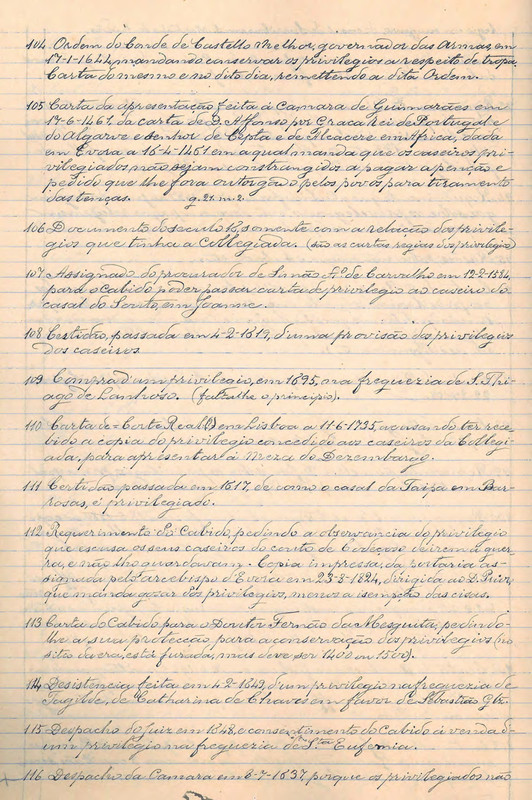 104 Ordem do Conde de Castello Melhor, governador das Armas, em
17-1-1644, mandando conservar os privilegios a respeito de tropa.
Carta do mesmo e no dito dia, remettendo a dita Ordem.
105 Carta da apresentação feita á Camara de Guimarães em
17-6-1461, da carta de D. Affonso, por Graça Rei de Portugal e
do Algarve e senhor de Cepta e de Alcacere em Africa, dada
em Evora a 16-4-1461 em a qual manda que os caseiros pri-
vilegiados não sejam constrangidos a pagar a penção e
pedido que lhe fora outorgado pelos povos para tiramento
das tenças. g. 28. m. 2.
106 Documento do seculo 18, somente com a relação dos privile-
gios que tinha a Collegiada. (são as cartas regias dos privilegios)
107 Assignado do procurador de Simão de Carvalho em 12-2-1584,
para o Cabido poder passar carta de privilegio ao caseiro do
casal do Souto, em Joanne.
108 Certidão, passada em 4-2-1819, d'uma provisão dos privilegios
dos caseiros.
109 Compra d'um privilegio, em 1695, na freguezia de S. Thi-
ago de Landroso. (falta lhe o principio).
110 Carta de Corte Real (?) em Lisboa a 11-6-1735, acusando ter rece-
bido a copia do privilegio concedido aos caseiros da Collegi-
ada, para apresentar á Meza do Dezembargo.
111 Certidão passada em 1617, de como o casal da Taipa em Bar-
rosas, é privilegiado.
112 Requerimento do Cabido, pedindo a observancia do privilegio
que escusa os seus caseiros do couto de Codeçoso de irem á guer-
ra, e não lho guardavam. Copia impressa, da portaria as-
signada pelo arcebispo d'Evora em 23-8-1824, dirigida ao D. Prior,
que manda gosar dos privilegios, menos a isempção das cisas.
113 Carta do Cabido para o Doutor Fernão da Mesquita, pedindo-
lhe a sua protecção para a conservação dos privilegios (no
sitio da era, está furada, mas deve ser 1400 ou 1500).
114 Desistencia feita em 4-2-1643, d'um privilegio na freguezia de
Tagilde, de Catharina de Chaves em favor de Sebastião Glz.
115 Despacho do Juiz em 1648, o consentimento do Cabido á venda d'
um privilegio na freguezia de Sta Eufemia.
116 Despacho da Camara em 6-7-1637, porque os privilegiados não